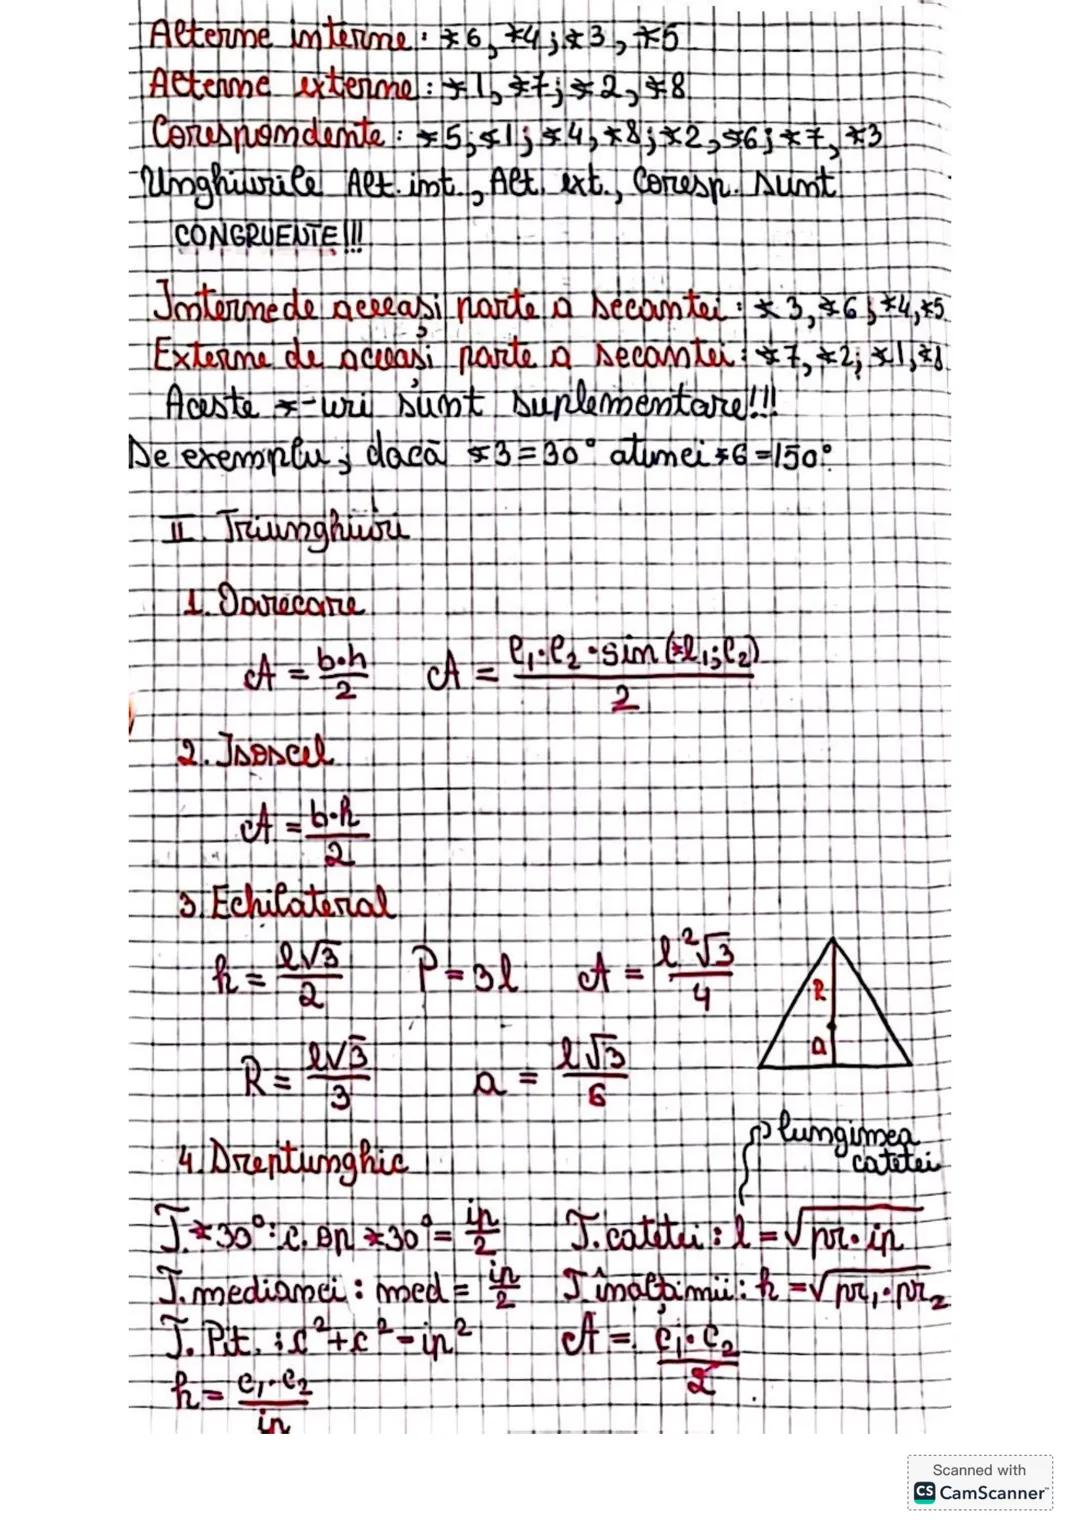 Alterne interne: ∢6, ∢4; ∢3, ∢5
Alterne externe: ∢1, ∢7; ∢2, ∢8
Corespondente: ∢5, ∢1; ∢4, ∢8; ∢2, ∢6; ∢7, ∢3
Unghiurile Alt. int., Alt. ext., Coresp. sunt
CONGRUENTE!!!
Interne de aceeași parte a secantei: ∢3, ∢6; ∢4, ∢5
Externe de aceeași parte a secantei: ∢7, ∢2; ∢1, ∢8
Aceste ∢-uri sunt suplementare!!!
De exemplu, dacă ∢3=30° atunci ∢6=150°
II. Triunghiuri
1. Oarecare
A = b·h/2 A = l₁·l₂·sin(∢l₁;l₂)/2
2. Isoscel
A = b·h/2
3. Echilateral
h = l√3/2 P = 3l A = l²√3/4
R
a
R = l√3/3 a = l√3/6
4. Dreptunghic
lungimea
catetei
T.∢30°: c. op ∢30° = ip/2 T. catetei: l = √pr·ip
T. medianei: med = ip/2 T înălțimii: h = √pr₁·pr₂
T. Pit.: c²+c²=ip² A = c₁·c₂/2
h = c₁·c₂/ip
Scanned with
CS CamScanner